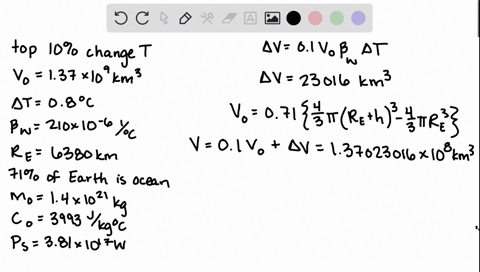 top 10% change T
V₀ = 1.37 × 10⁹ km³
ΔT = 0.8°C
β_w = 210×10⁻⁶ 1/°C
R_E = 6380 km
71% of Earth is ocean
M₀ = 1.4 × 10²¹ kg
C₀ = 3993 J/kg°C
P_S = 3.81 × 10¹⁷ W
ΔV = 0.1 V₀ β_w ΔT
ΔV = 23016 km³
V₀ = 0.71 {4/3 π (R_E + h)³ - 4/3 π R_E³}
V = 0.1 V₀ + ΔV = 1.37023016 × 10⁸ km³